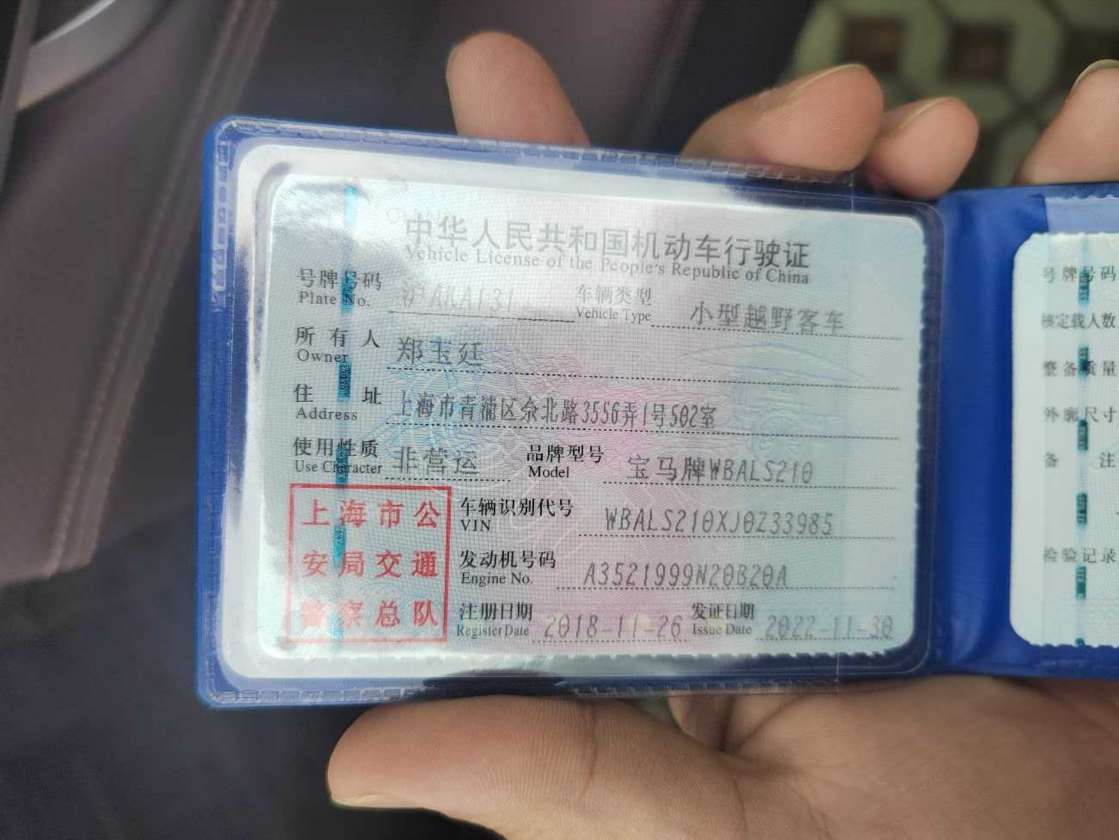 中华人民共和国机动车行驶证
Vehicle License of the People's Republic of China
号牌号码
Plate No.
车辆类型 小型越野客车
Vehicle Type
所有人 郑玉廷
Owner
住址 上海市青浦区佘北路3556弄1号502室
Address
使用性质 非营运
Use Character
品牌型号 宝马牌WBALS210
Model
上海市公
安局交通
警察总队
车辆识别代号 WBALS210XJ0Z33985
VIN
发动机号码 A3521999N20B20A
Engine No.
注册日期 2018-11-26
Register Date
发证日期 2022-11-30
Issue Date
号牌号码
核定载人数
整备质量
外廓尺寸
备注
检验记录